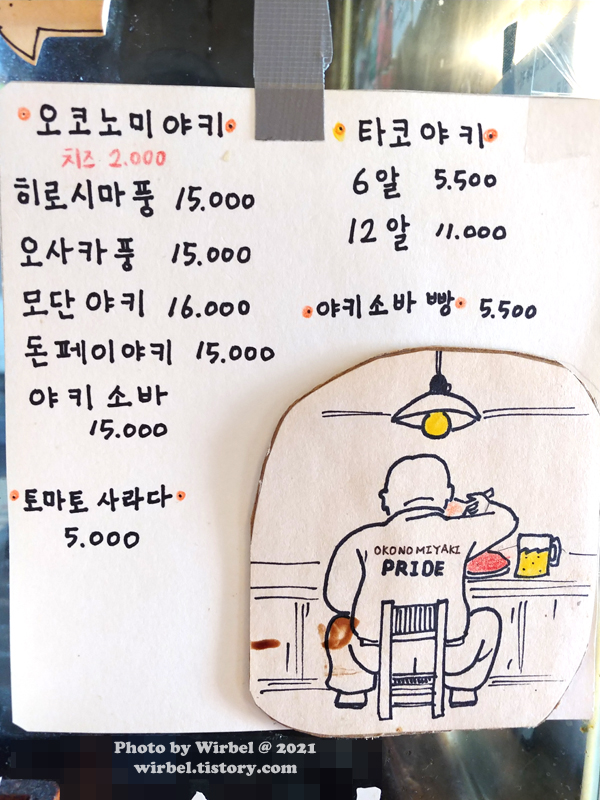 오코노미야키
치즈 2.000
히로시마풍 15.000
오사카풍 15.000
모단야키 16.000
돈페이야키 15.000
야키소바
15.000
토마토 사라다
5.000
타코야키
6알 5.500
12알 11.000
야키소바빵 5.500
OKONOMIYAKI
PRIDE
Photo by Wirbel @ 2021
wirbel.tistory.com